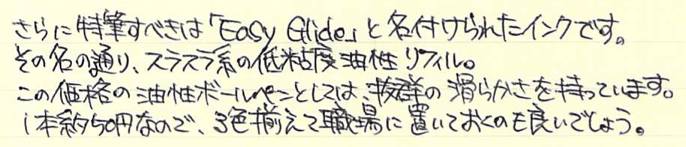 さらに特筆すべきは「Easy Glide」と名付けられたインクです。
その名の通り、スラスラ系の低粘度油性リフィル。
この価格の油性ボールペンとしては、抜群の滑らかさを持っています。
1本約50円なので、3色揃えて職場に置いておくのも良いでしょう。